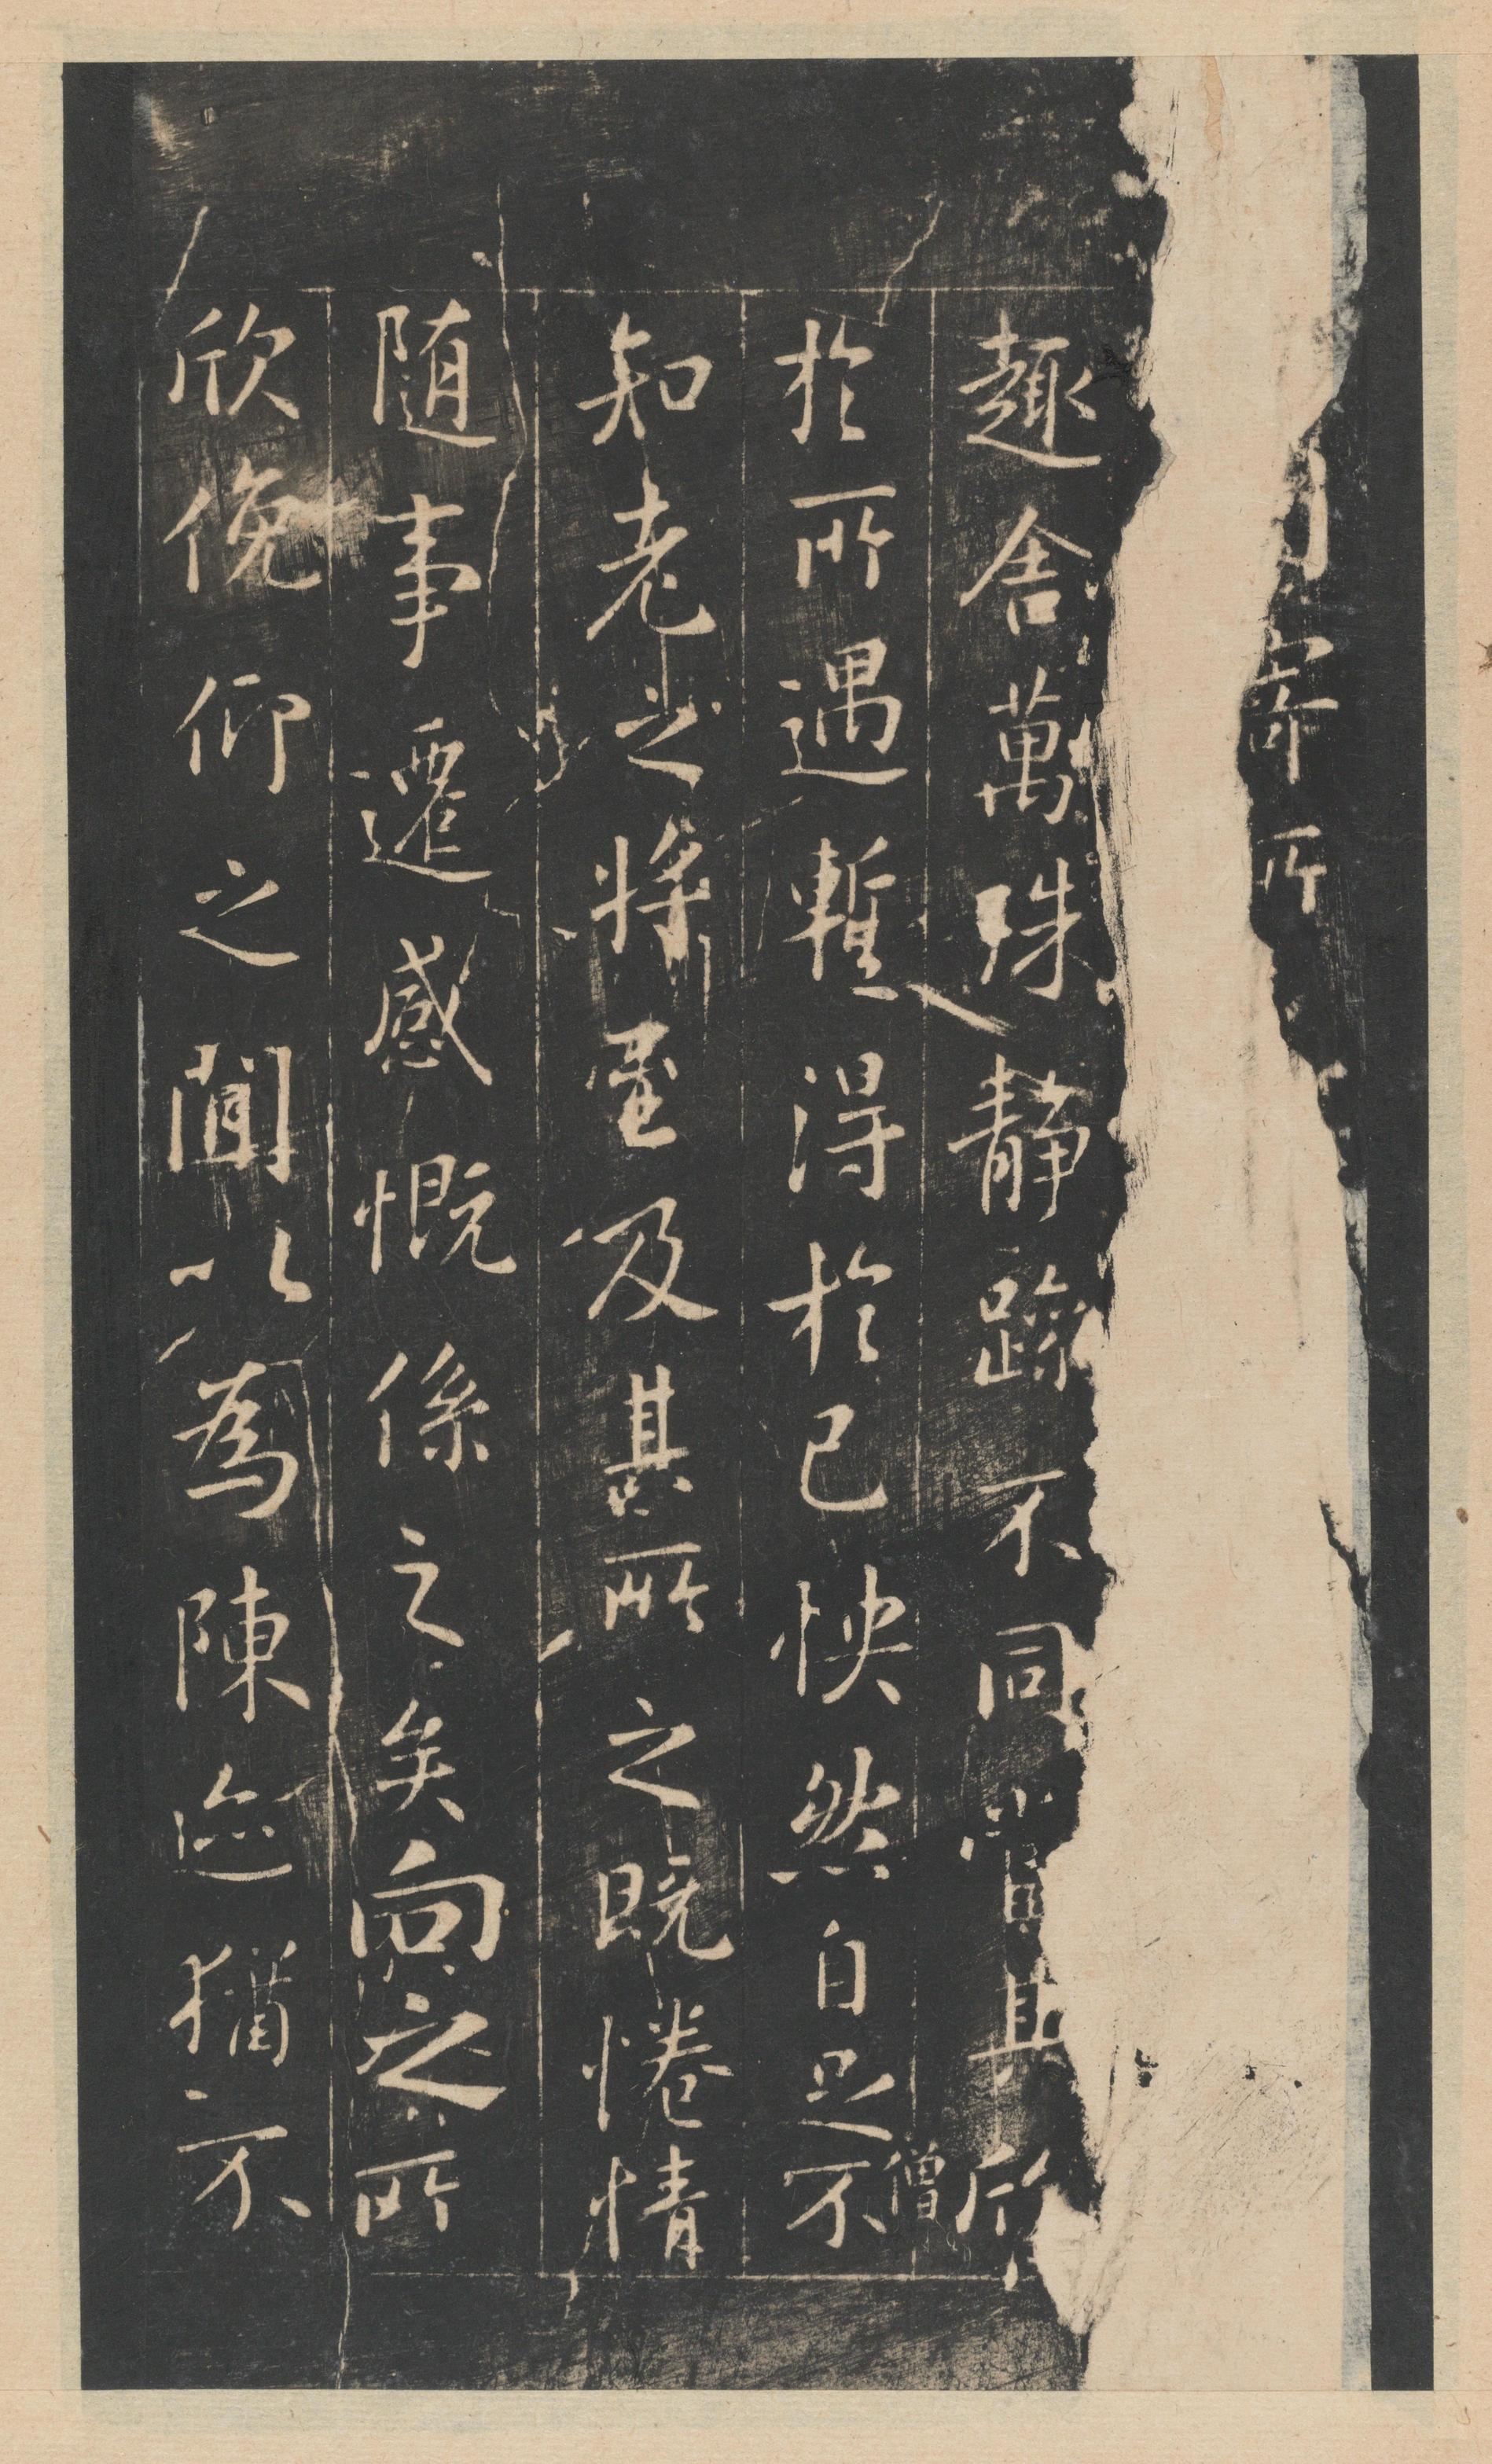 寄所
趣舍萬殊静躁不同當其欣
於所遇暫得於己怏然自足不
僧
知老之將至及其所之既惓情
随事遷感慨係之矣向之所
欣俛仰之閒以為陳迹猶不